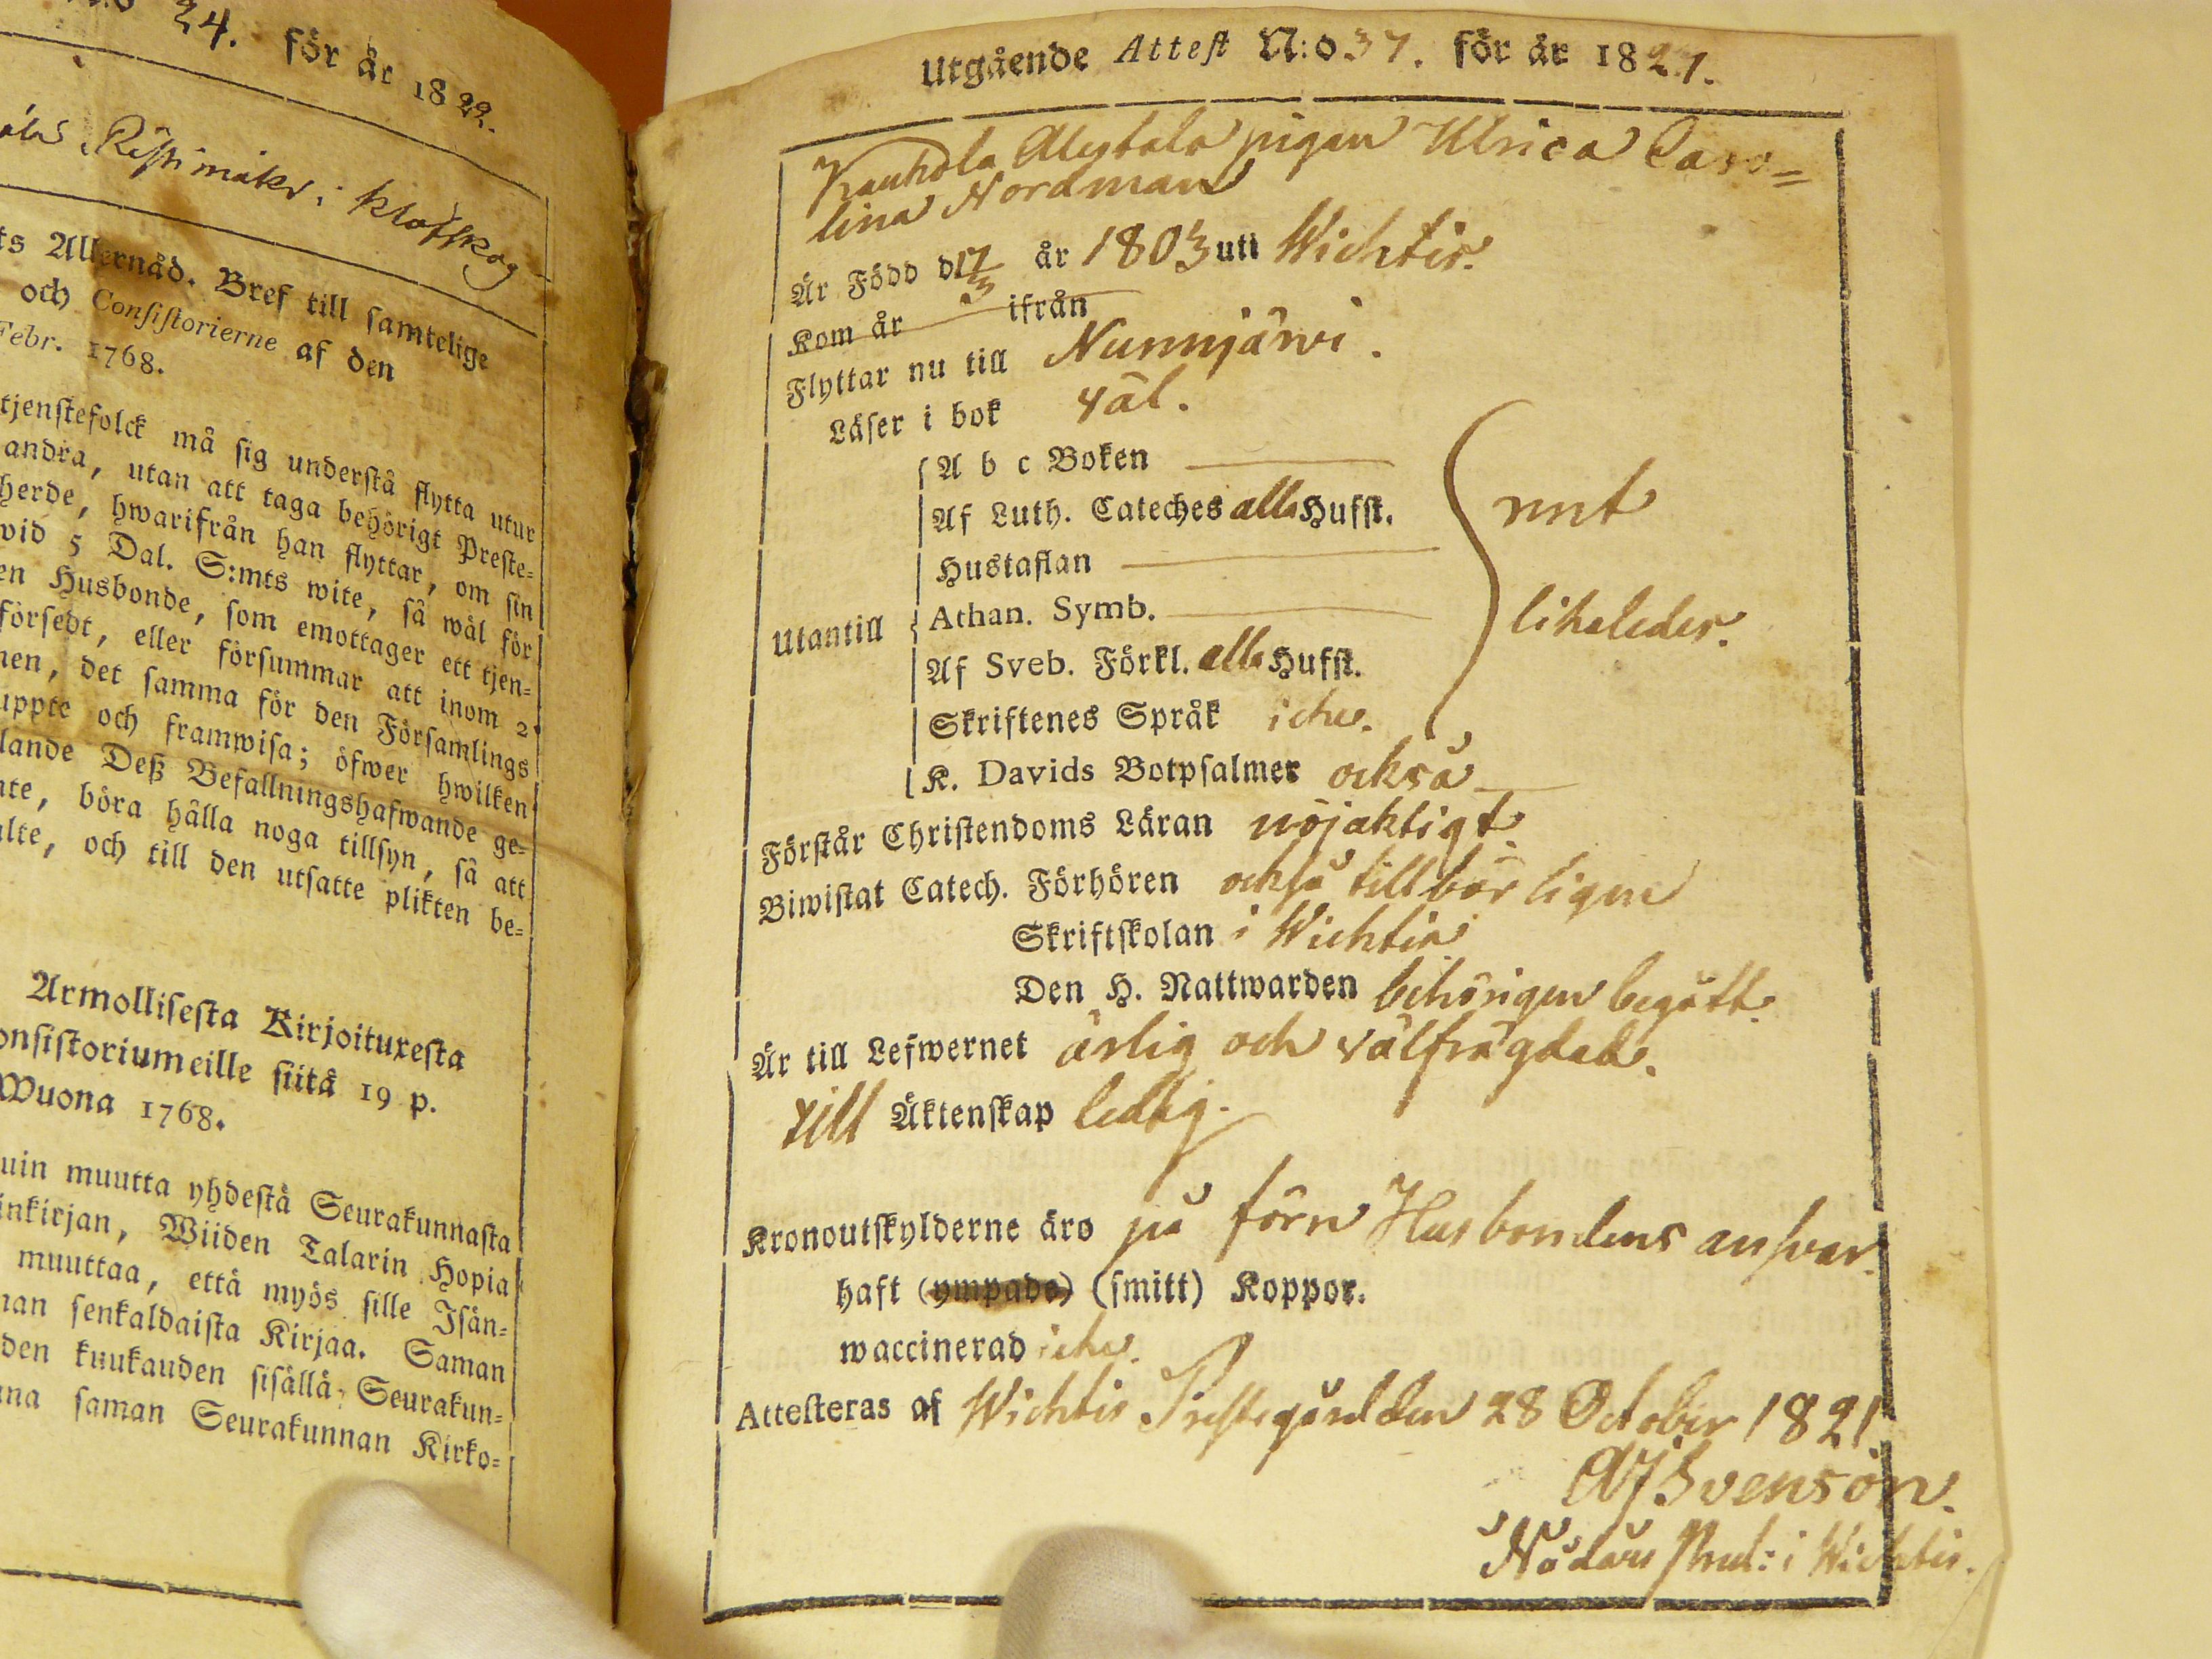 24. för år 1822.
Ristimäki i Klåfskog
ts Allernåd. Bref till samtelige
och Consistorierne af den
Febr. 1768.
tjenstefolck må sig understå flytta utur
andra, utan att taga behörigt Preste-
herde, hwarifrån han flyttar, om sin
wid 5 Dal. S:mts wite, så wäl för
en Husbonde, som emottager ett tjen-
försedt, eller försummar att inom 2
nen, det samma för den Församlings
uppte och framwisa; öfwer hwilken
lande Deß Befallningshafwande ge-
nte, böra hålla noga tillsyn, så att
ulte, och till den utsatte plikten be-
Armollisesta Kirjoituxesta
onsistoriumeille siitä 19 p.
Wuona 1768.
uin muutta yhdestä Seurakunnasta
inkirjan, Wiiden Talarin Hopia
muuttaa, että myös sille Isän-
nan senkaldaista Kirjaa. Saman
den kuukauden sisällä, Seurakun-
na saman Seurakunnan Kirko-
Utgående Attest N:o 37. för år 1821.
Kauhola Alestalo pigan Ulrica Caro=
lina Nordman
Är Född d 17/3 år 1803 uti Wichtis.
Kom år ifrån
Flyttar nu till Nummjärvi.
Läser i bok väl.
A b c Boken
Af Luth. Cateches alla Hufst.
Hustaflan
Athan. Symb.
Utantill
Af Sveb. Förkl. alla Hufst.
Skriftenes Språk icke.
K. Davids Botpsalmer också
rnt
likaledes.
Förstår Christendoms Läran nöjaktigt.
Biwistat Catech. Förhören också tillbörligen
Skriftskolan i Wichtis
Den H. Nattwarden behörigen begått.
Är till Lefwernet ärlig och välfrägdad.
till Äktenskap ledig.
Kronoutskylderne äro på förn Husbondens ansvar.
haft (ympade) (smitt) Koppor.
waccinerad icke.
Attesteras af Wichtis Prestegård den 28 October 1821.
AJSvenson.
Nådårs Pred: i Wichtis.